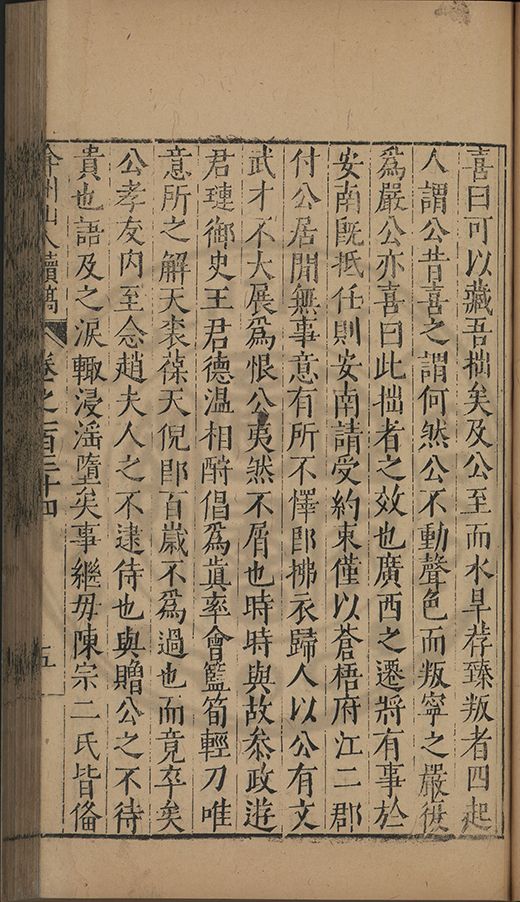 喜曰可以藏吾拙矣及公至而水旱荐臻叛者四起
人謂公昔喜之謂何然公不動聲色而叛寧之嚴復
為嚴公亦喜曰此拙者之效也廣西之遷將有事於
安南旣抵任則安南請受約束僅以蒼梧府江二郡
付公居閒無事意有所不懌卽拂衣歸人以公有文
武才不大展為恨公夷然不屑也時時與故叅政遊
君璉御史王君德溫相酧倡為眞率會籃筍輕刀唯
意所之解天袠葆天倪卽百歲不為過也而竟卒矣
公孝友內至念趙夫人之不逮待也與贈公之不待
貴也語及之淚輙浸滛墮矣事繼毋陳宗二氏皆俻
弇州山人續稿 卷之一百三十四 五